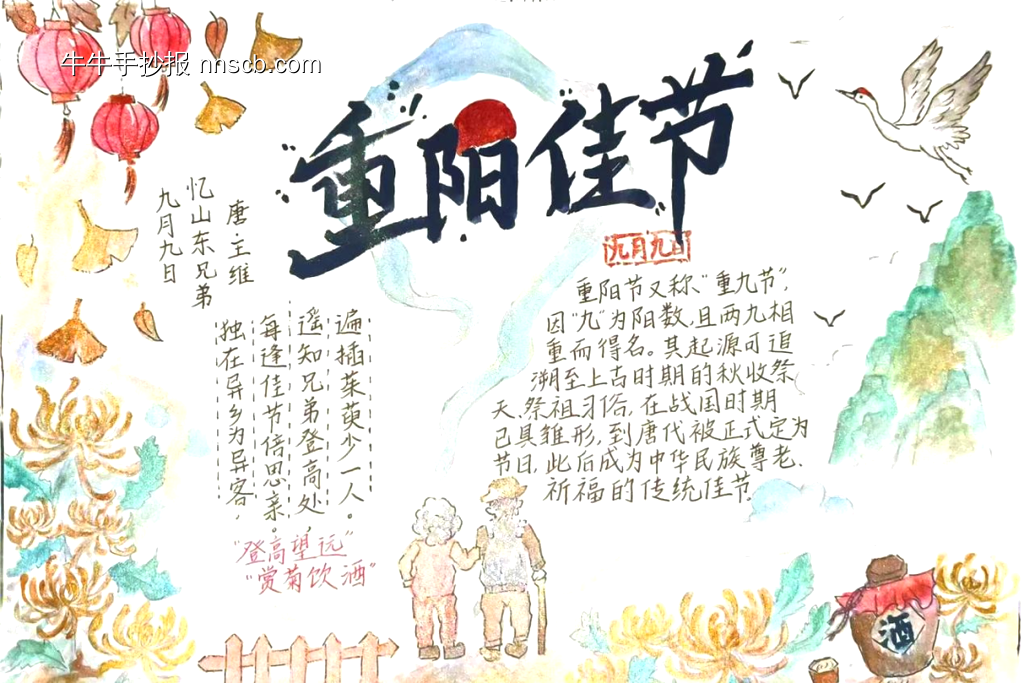 牛牛手抄报 nnscb.com
重阳佳节
九月九日
九月九日
忆山东兄弟
唐·王维
独在异乡为异客，
每逢佳节倍思亲。
遥知兄弟登高处，
遍插茱萸少一人。
"登高望远"
"赏菊饮酒"
重阳节又称、"重九节"，
因"九"为阳数，且两九相
重而得名。其起源可追
溯至上古时期的秋收祭
天、祭祖习俗，在战国时期
已具雏形，到唐代被正式定为
节日，此后成为中华民族尊老、
祈福的传统佳节。
酒